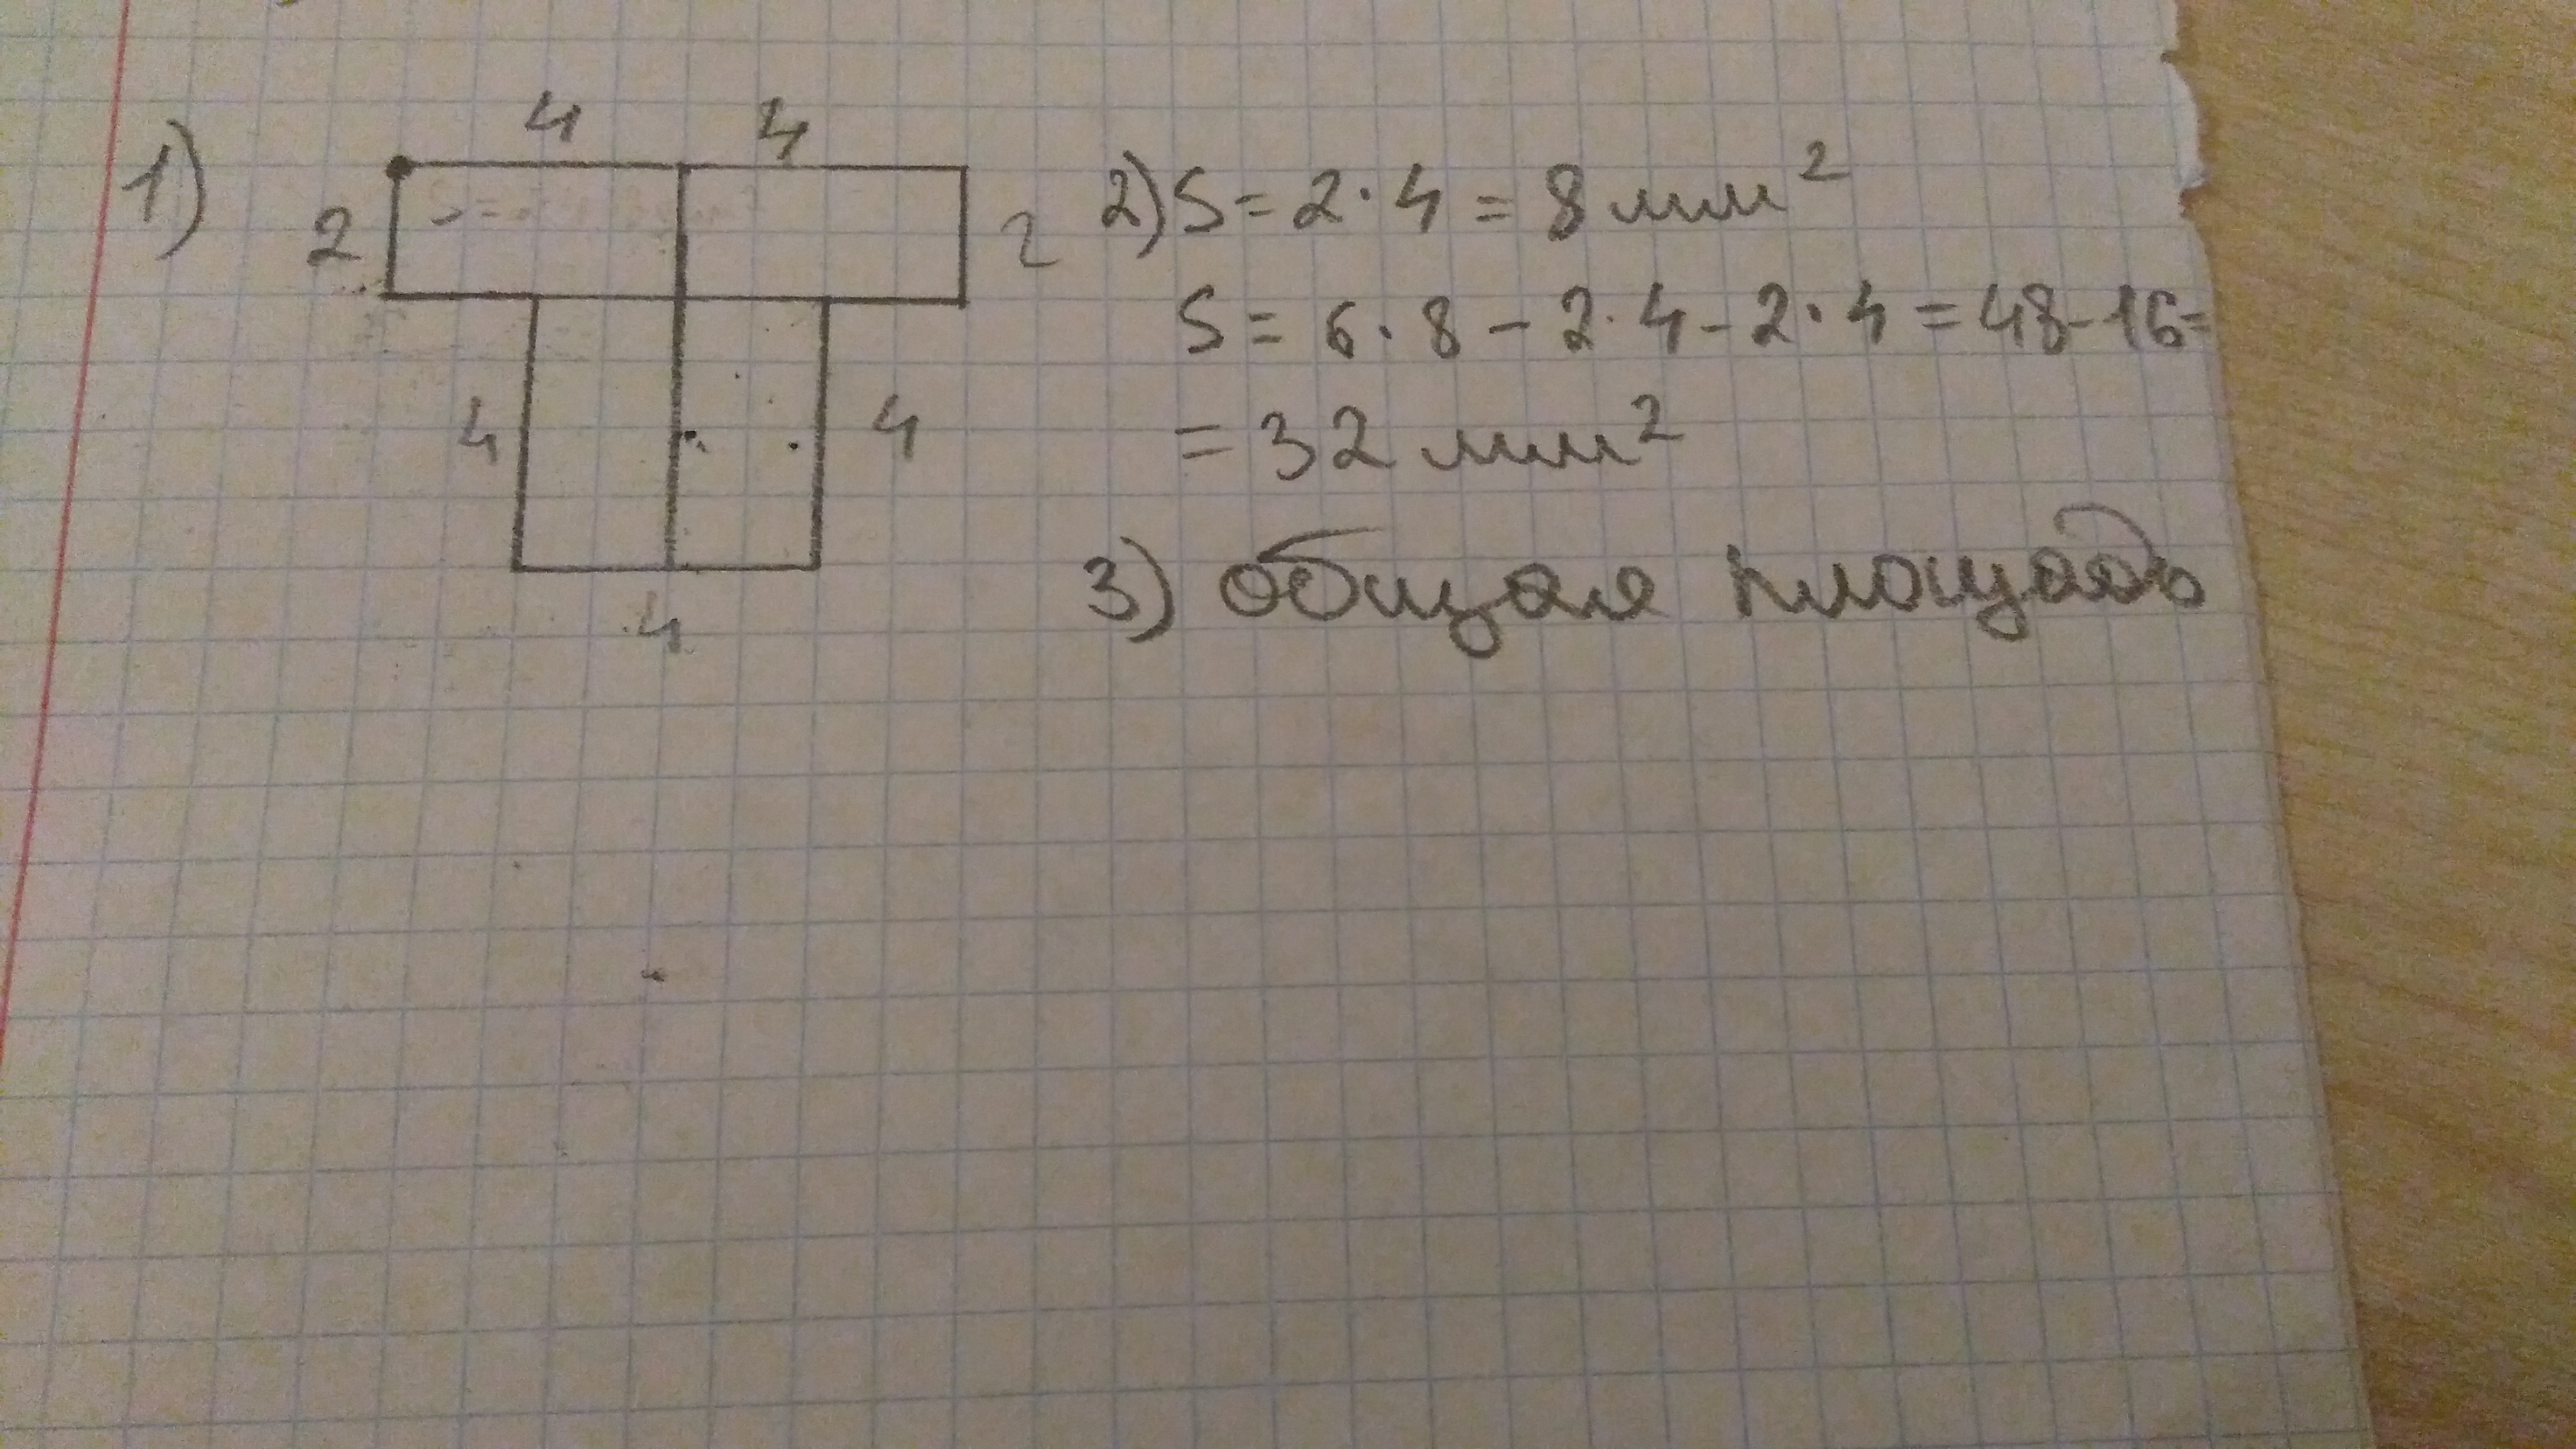 1)
4 4
2 2
4 4
4
2) S = 2 · 4 = 8 мм²
S = 6 · 8 - 2 · 4 - 2 · 4 = 48 - 16 =
= 32 мм²
3) общая площадь